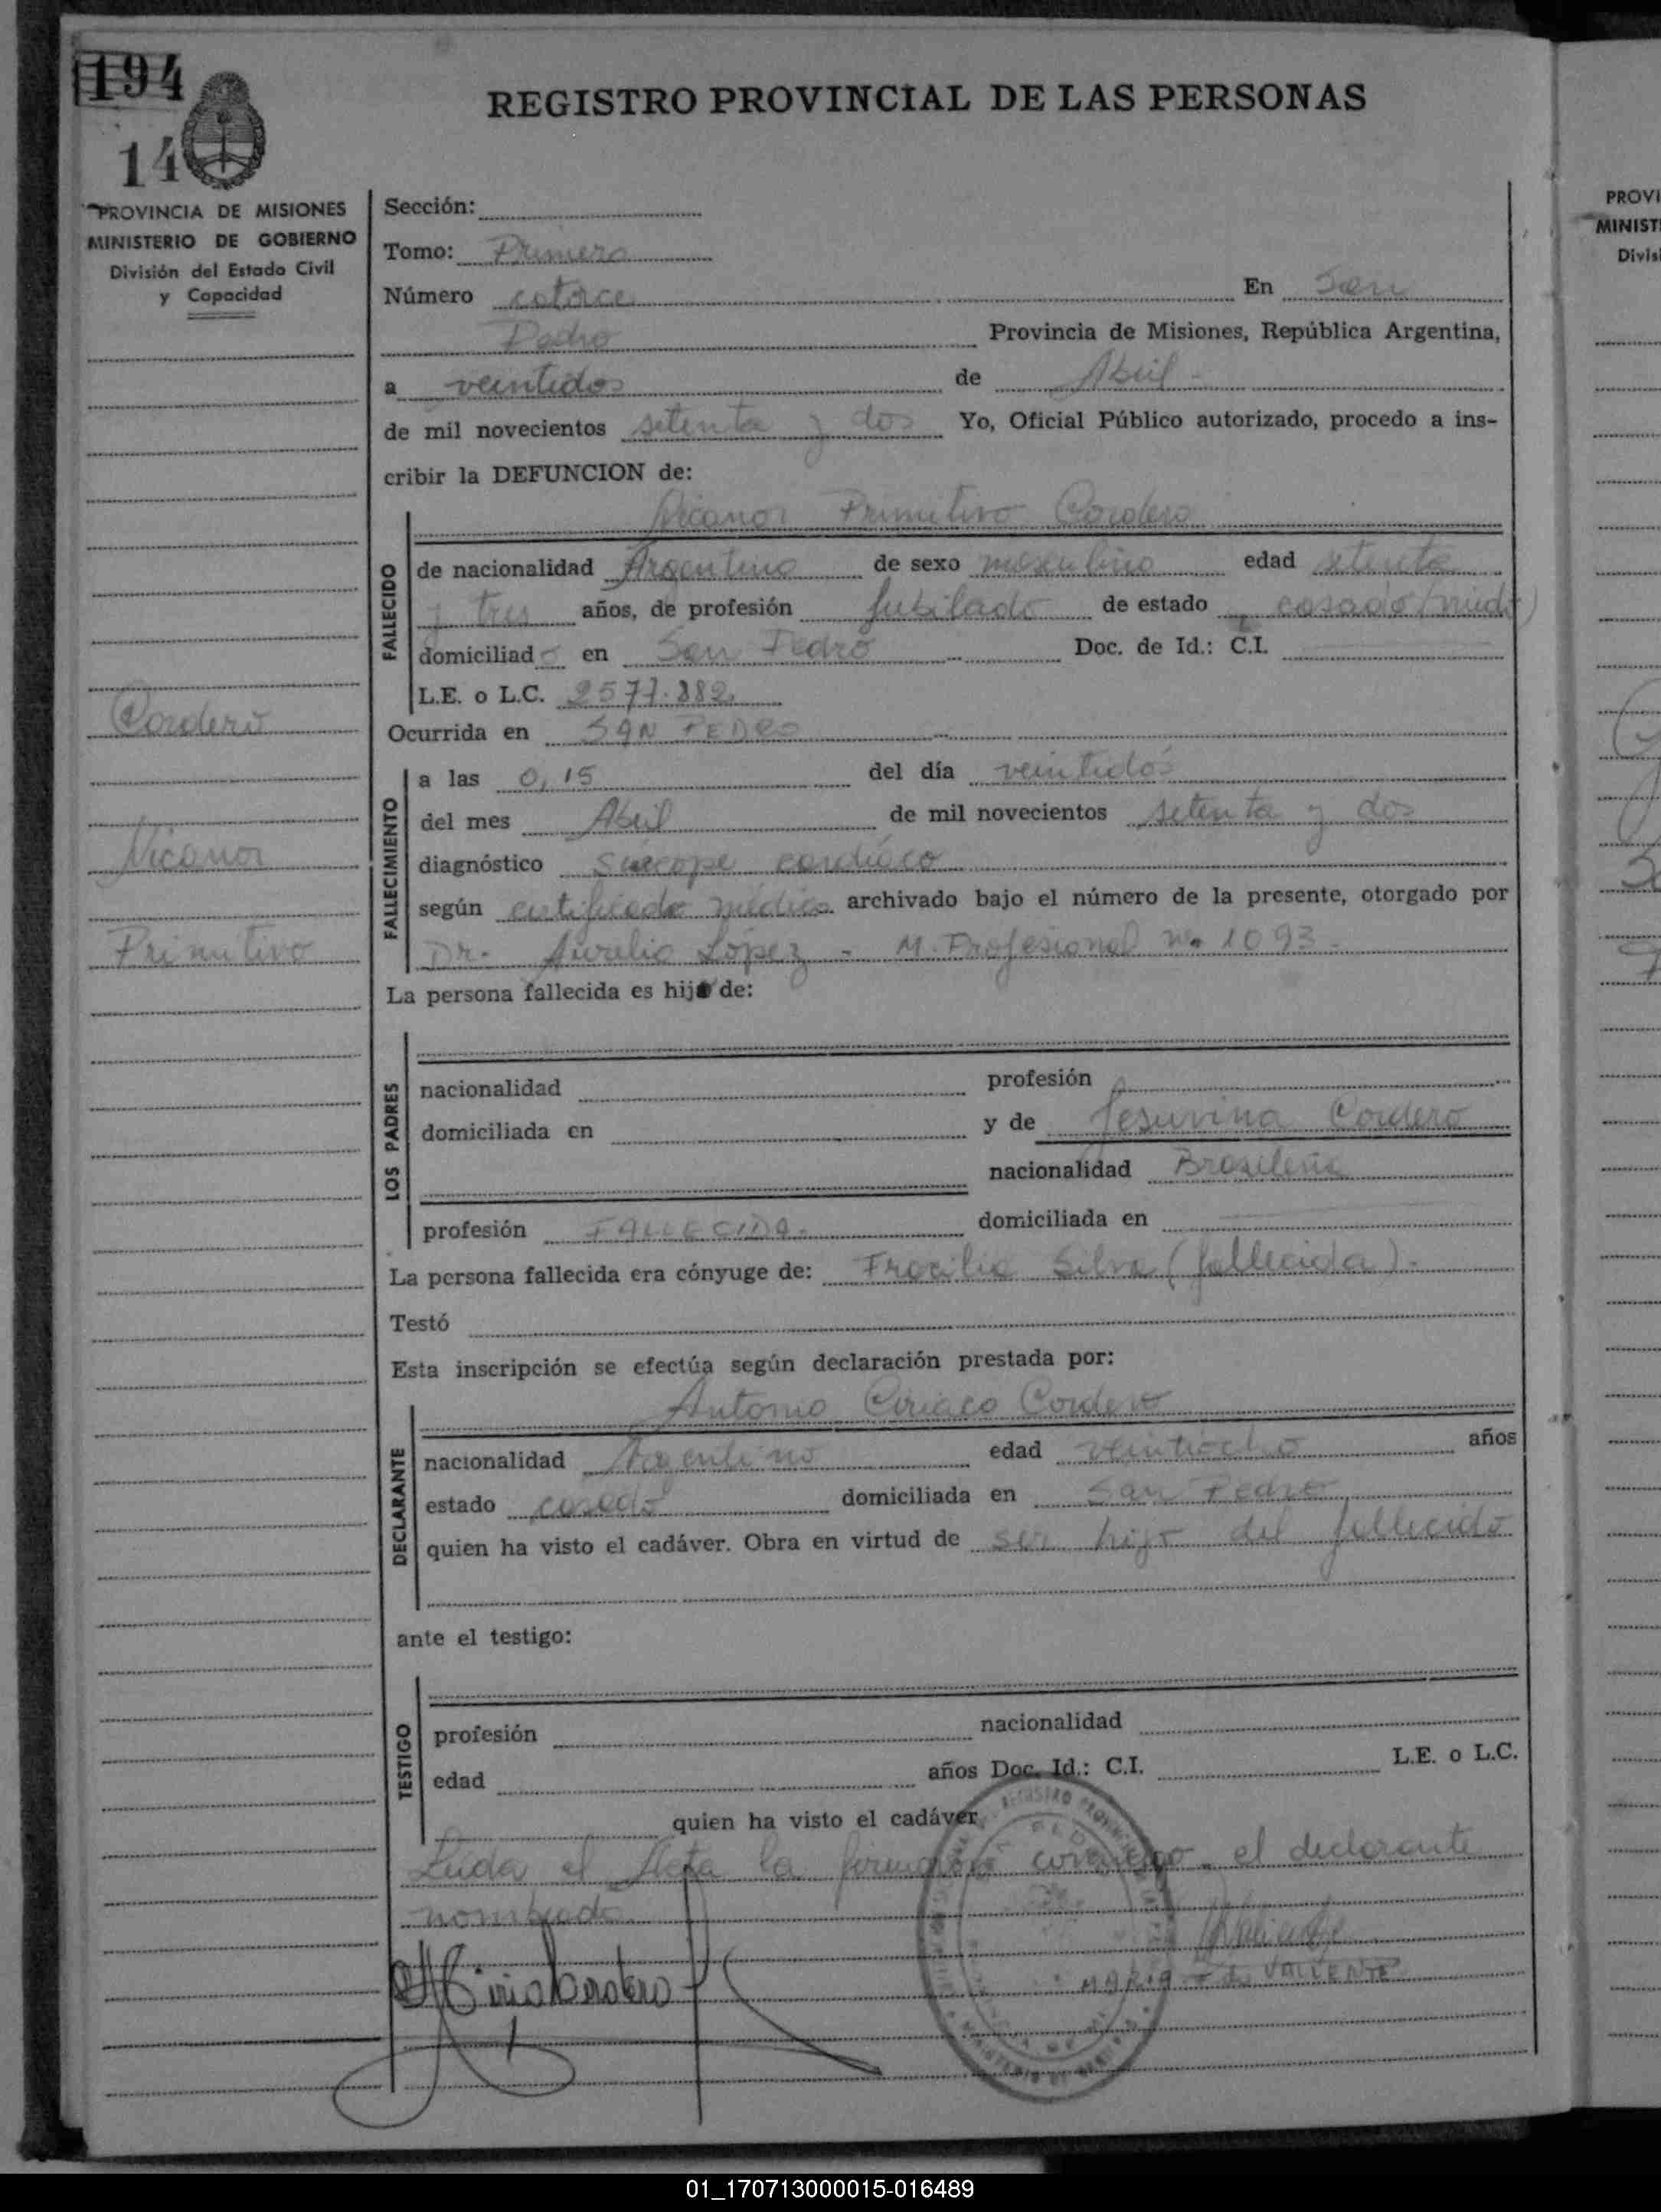 194
14
REGISTRO PROVINCIAL DE LAS PERSONAS
PROVINCIA DE MISIONES
MINISTERIO DE GOBIERNO
División del Estado Civil
y Capacidad
Cordero
Nicanor
Primitivo
Sección:
Tomo: Primero
Número catorce En San
Pedro Provincia de Misiones, República Argentina,
a veintidos de Abril -
de mil novecientos setenta y dos Yo, Oficial Público autorizado, procedo a ins-
cribir la DEFUNCION de:
Nicanor Primitivo Cordero
FALLECIDO
de nacionalidad Argentino de sexo masculino edad setenta
y tres años, de profesión Jubilado de estado casado/viudo
domiciliado en San Pedro Doc. de Id.: C.I.
L.E. o L.C. 2577.882
Ocurrida en SAN PEDRO
FALLECIMIENTO
a las 0,15 del día veintidós
del mes Abril de mil novecientos setenta y dos
diagnóstico cardíaco
según certificado médico archivado bajo el número de la presente, otorgado por
Dr. Aurelio López - M. Profesional nº 1093 -
La persona fallecida es hijo de:
LOS PADRES
nacionalidad profesión
domiciliada en y de Jesuvina Cordero
nacionalidad Brasileña
profesión FALLECIDA. domiciliada en
La persona fallecida era cónyuge de: Silva (fallecida).
Testó
Esta inscripción se efectúa según declaración prestada por:
Antonio Ciriaco Cordero
DECLARANTE
nacionalidad Argentino edad veintiocho años
estado casado domiciliada en San Pedro
quien ha visto el cadáver. Obra en virtud de ser hijo del fallecido
ante el testigo:
TESTIGO
profesión nacionalidad
edad años Doc. Id.: C.I. L.E. o L.C.
quien ha visto el cadáver
Leída el Acta la conmigo el declarante
nombrado
Cordero
MARIA VALIENTE
PROVI
MINIST
Divis
01_170713000015-016489